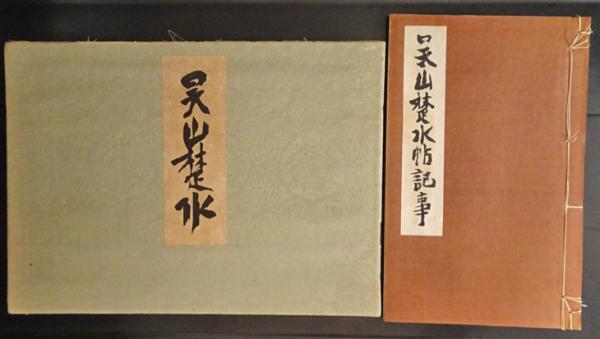 呉山楚水
呉山楚水帖記事